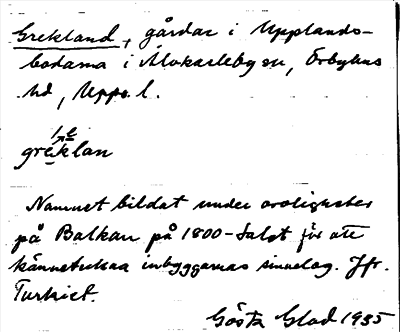 Grekland, gårdar i Upplands-
bodarna i Älvkarleby sn, Örbyhus
hd, Upps. l.
greklan
Namnet bildat under oroligheter
på Balkan på 1800-talet för att
känneteckna inbyggarnas sinnelag. Jfr.
Turkiet.
Gösta Glad 1935